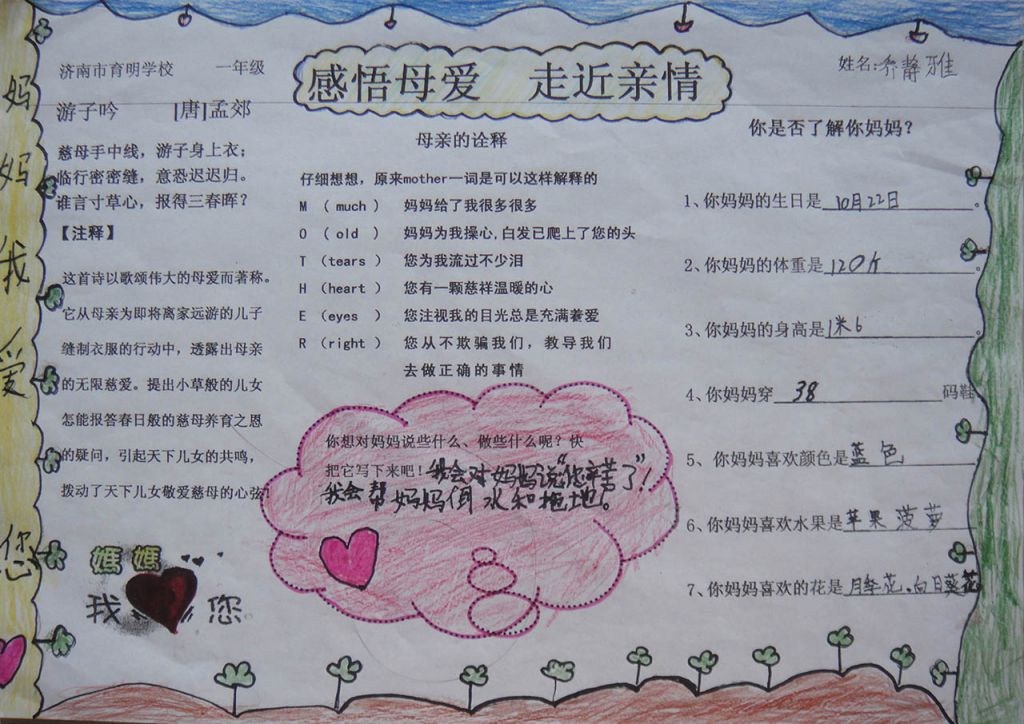 妈妈我爱您
济南市育明学校 一年级
感悟母爱 走近亲情
姓名:乔静雅
游子吟 [唐]孟郊
慈母手中线，游子身上衣；
临行密密缝，意恐迟迟归。
谁言寸草心，报得三春晖？
【注释】
这首诗以歌颂伟大的母爱而著称。
它从母亲为即将离家远游的儿子
缝制衣服的行动中，透露出母亲
的无限慈爱。提出小草般的儿女
怎能报答春日般的慈母养育之恩
的疑问，引起天下儿女的共鸣，
拨动了天下儿女敬爱慈母的心弦?
媽媽
我 您
母亲的诠释
仔细想想，原来mother一词是可以这样解释的
M （ much ） 妈妈给了我很多很多
O （ old ） 妈妈为我操心,白发已爬上了您的头
T （tears ） 您为我流过不少泪
H （heart ） 您有一颗慈祥温暖的心
E （eyes ） 您注视我的目光总是充满着爱
R （right ） 您从不欺骗我们，教导我们
去做正确的事情
你想对妈妈说些什么、做些什么呢？快
把它写下来吧！我会对妈妈说“您辛苦了”！
我会帮妈妈倒水和拖地。
你是否了解你妈妈？
1、你妈妈的生日是 10月22日 。
2、你妈妈的体重是 120斤 。
3、你妈妈的身高是 1米6 。
4、你妈妈穿 38 码鞋
5、你妈妈喜欢颜色是 蓝色
6、你妈妈喜欢水果是 苹果 菠萝
7、你妈妈喜欢的花是 月季花.向日葵花